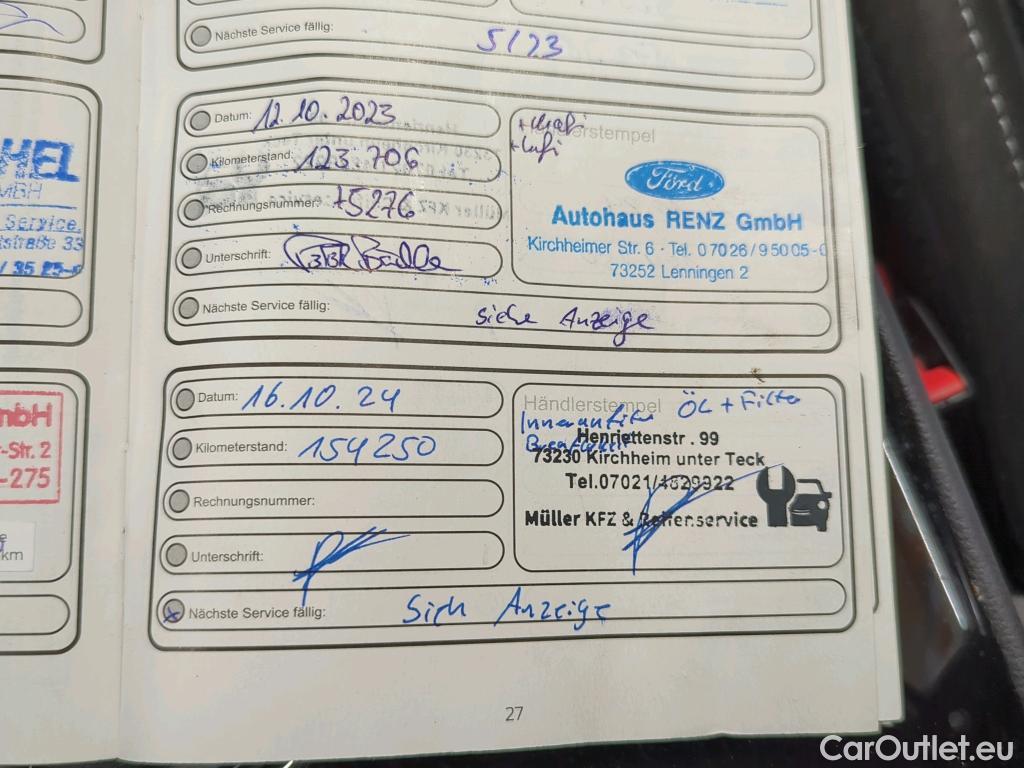 Nächste Service fällig: 5/23
HEL
MBH
Service
tstraße 33
Datum: 12.10.2023
Kilometerstand: 123 706
Rechnungsnummer: 75276
Unterschrift:
Nächste Service fällig: siehe Anzeige
Händlerstempel
Ford
Autohaus RENZ GmbH
Kirchheimer Str. 6 · Tel. 07026/95005-0
73252 Lenningen 2
mbH
-Str. 2
-275
km
Datum: 16.10.24
Kilometerstand: 154250
Rechnungsnummer:
Unterschrift:
Nächste Service fällig: Sieh Anzeige
Händlerstempel ÖL + Filter
Henriettenstr. 99
73230 Kirchheim unter Teck
Tel.07021/4829922
Müller KFZ & Reifenservice
27
CarOutlet.eu